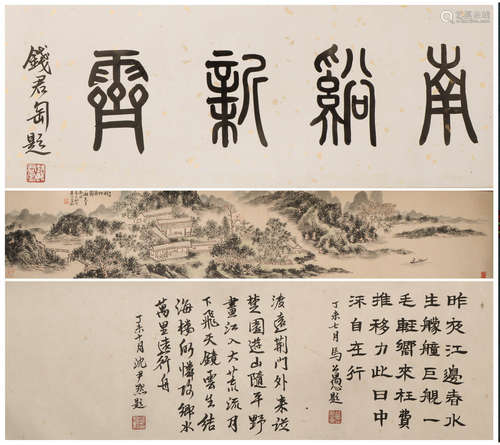 南谿新霽
錢君匋題
昨夜江邊春水
生艨艟巨艦一
毛輕嚮來枉費
推移力此日中
流自在行
丁未七月馬公愚題
渡遠荊門外來從
楚國遊山隨平野
盡江入大荒流月
下飛天鏡雲生結
海樓仍憐故鄉水
萬里送行舟
丁未十月沈尹默題